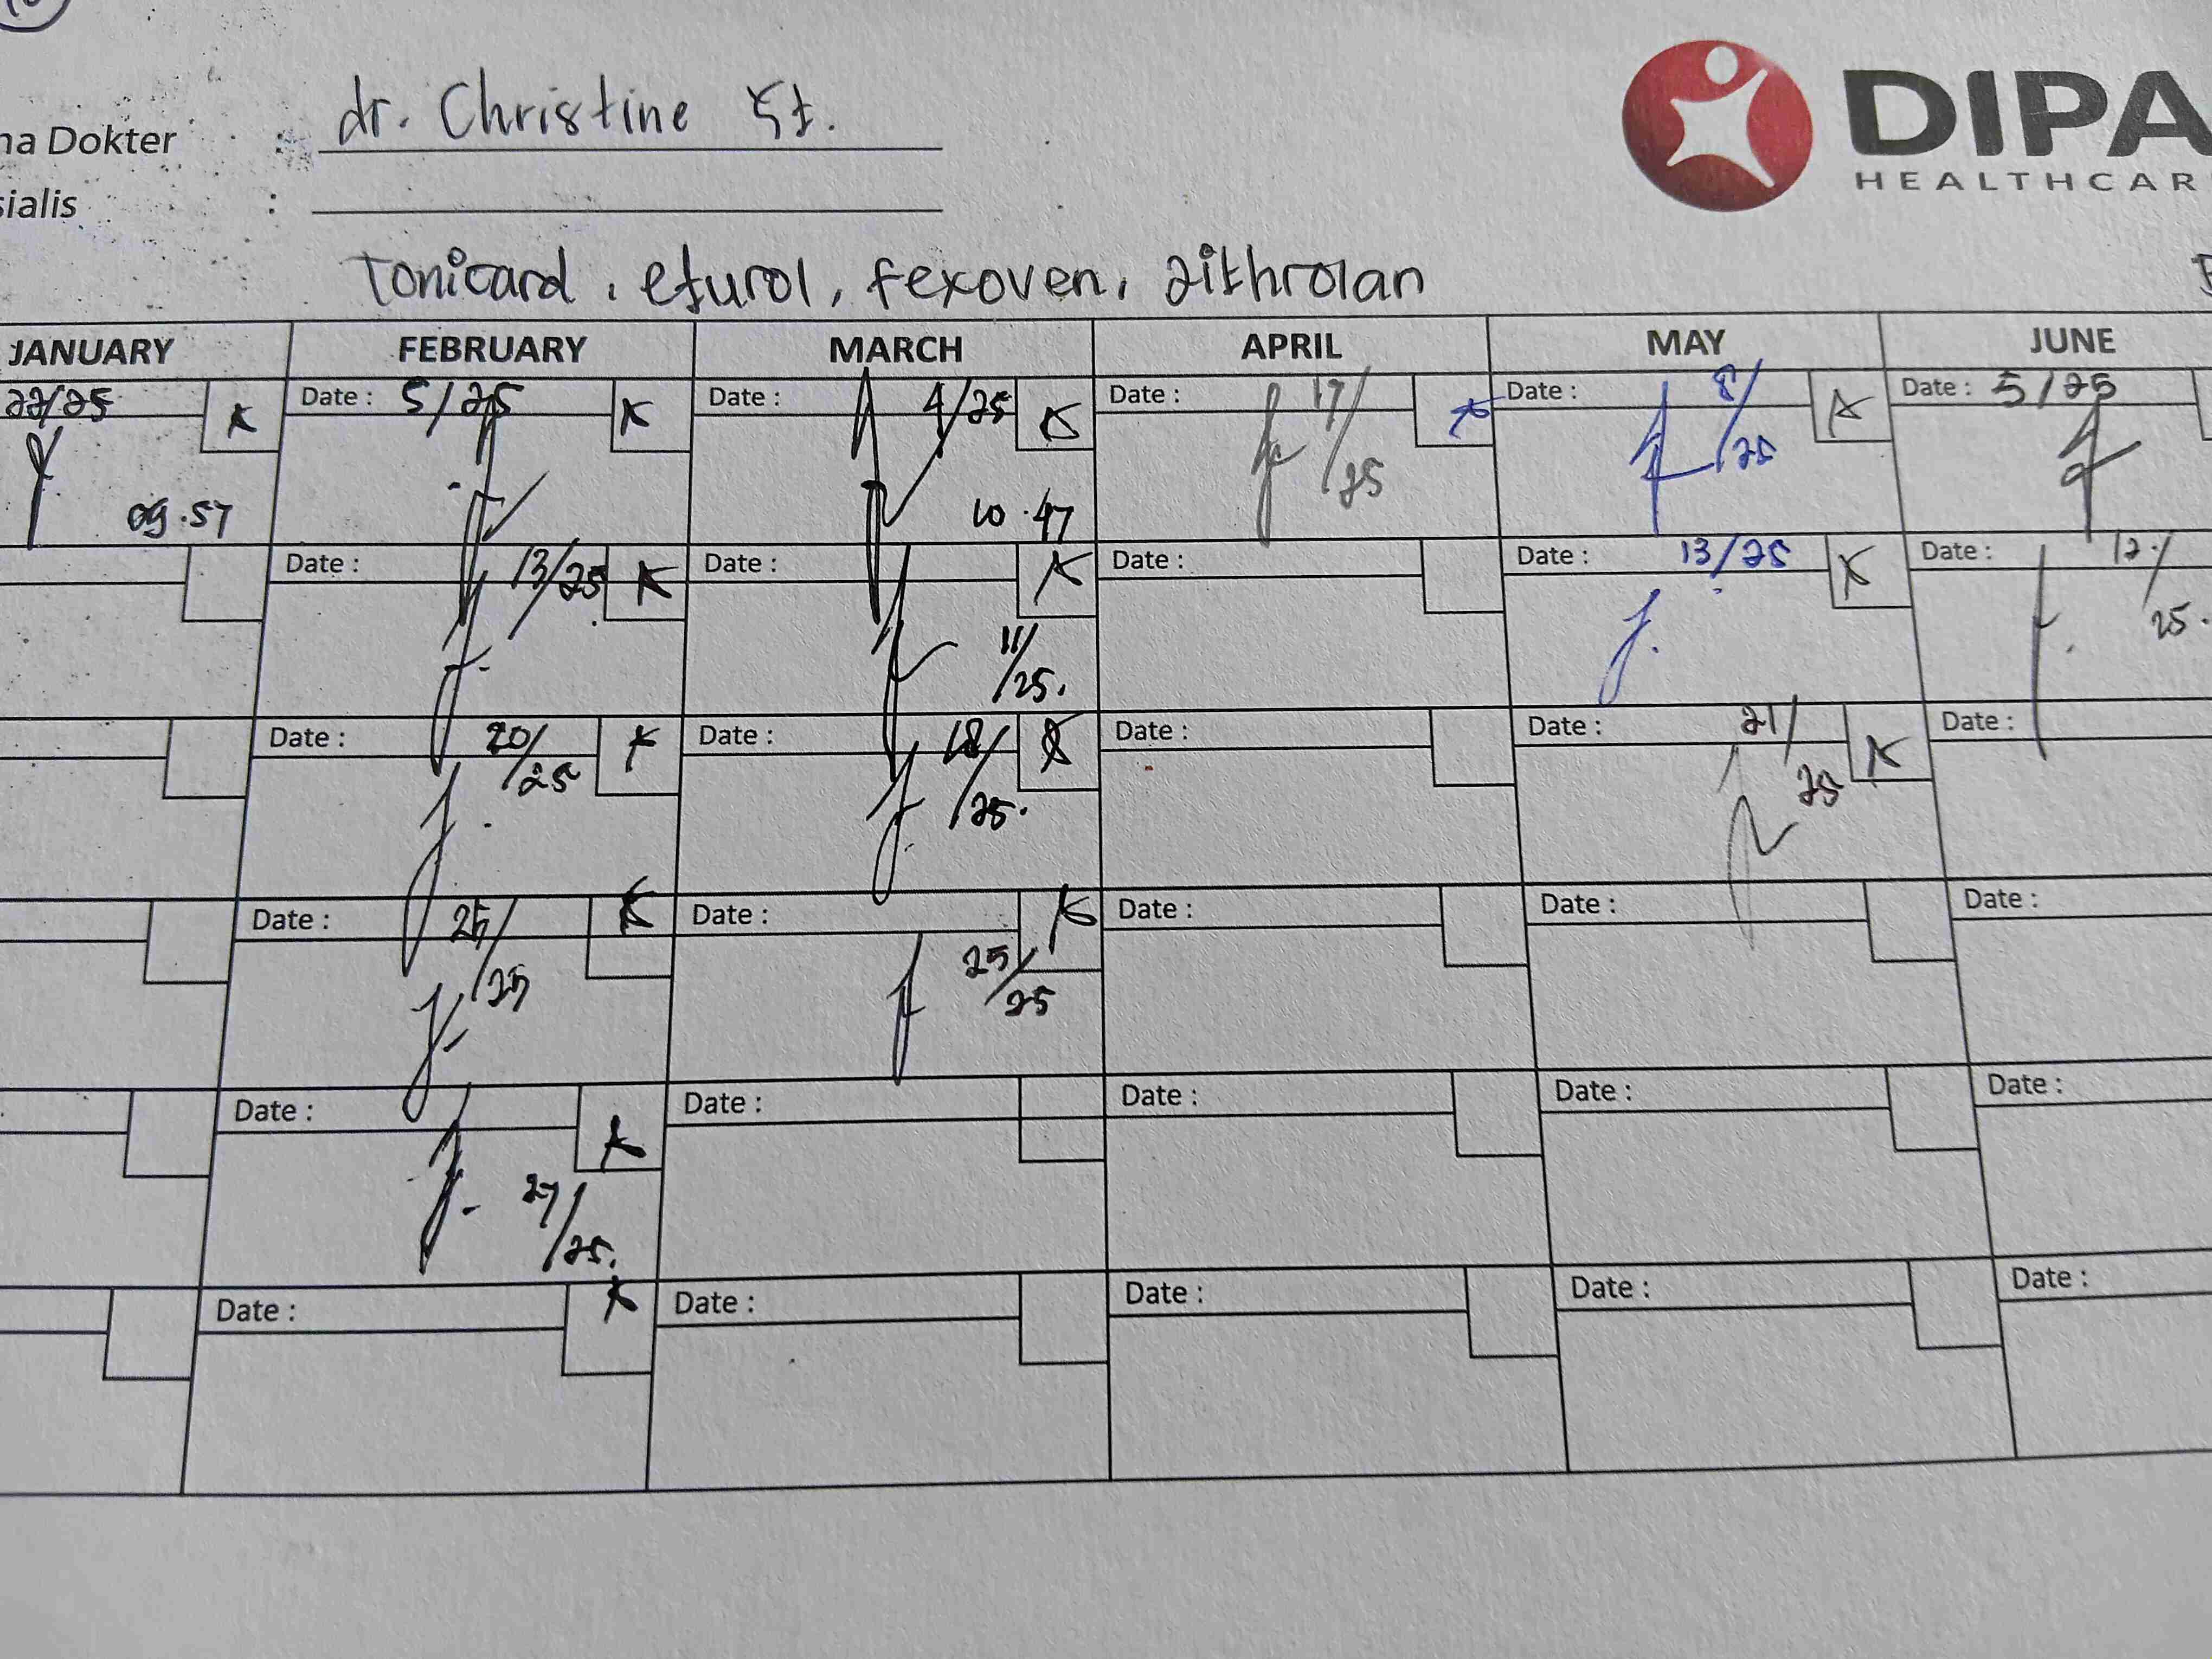 na Dokter : dr. Christine St.
DIPA
HEALTHCAR
sialis :
Tonicard, efurol, fexoven, zithrolan
JANUARY FEBRUARY MARCH APRIL MAY JUNE
22/25 Date : 5/25 Date : 4/25 Date : 17/25 Date : 8/25 Date : 5/25
09.57 10.47
Date : 13/25 Date : 11/25. Date : Date : 13/25 Date : 12/25.
Date : 20/25 Date : 18/25. Date : Date : 21/25 Date :
Date : 25/25 Date : 25/25 Date : Date : Date :
Date : 27/25. Date : Date : Date : Date :
Date : Date : Date : Date : Date :